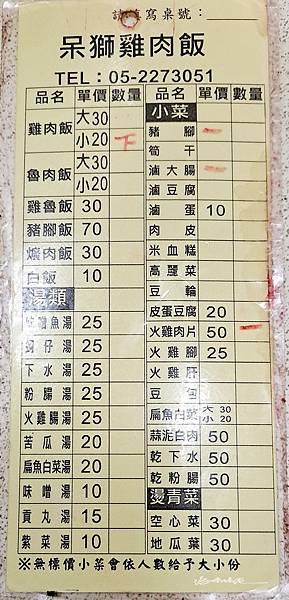 請填寫桌號：
呆獅雞肉飯
TEL：05-2273051
品名 單價 數量
雞肉飯 大30
小20 下
魯肉飯 大30
小20
雞魯飯 30
豬腳飯 70
爌肉飯 30
白飯 10
湯類
味噌魚湯 25
蚵仔湯 25
下水湯 25
粉腸湯 25
火雞腸湯 25
苦瓜湯 20
扁魚白菜湯 20
味噌湯 10
貢丸湯 15
紫菜湯 10
品名 單價 數量
小菜
豬腳 一
筍干
滷大腸 一
滷豆腐
滷蛋 10
肉皮
米血糕
高麗菜
豆輪
皮蛋豆腐 20
火雞肉片 50
火雞腳 25
火雞肝
豆包
扁魚白菜 大30
小20
蒜泥白肉 50
乾下水 50
乾粉腸 50
燙青菜
空心菜 30
地瓜葉 30
※無標價小菜會依人數給予大小份